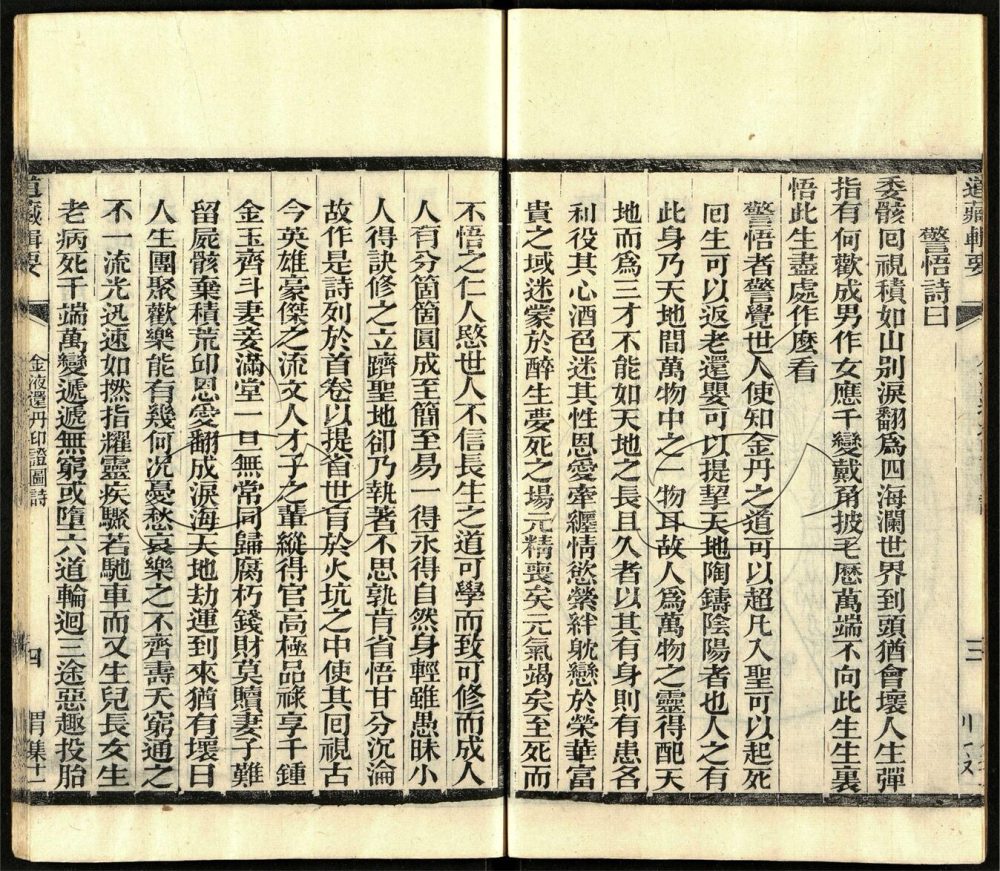 道藏輯要
三
警悟詩曰
委骸囘視積如山別淚翻爲四海瀾世界到頭猶會壞人生彈
指有何歡成男作女應千變戴角披毛歷萬端不向此生生裏
悟此生盡處作麽看
警悟者警覺世人使知金丹之道可以超凡入聖可以起死
囘生可以返老還嬰可以提挈天地陶鑄陰陽者也人之有
此身乃天地間萬物中之一物耳故人爲萬物之靈得配天
地而爲三才不能如天地之長且久者以其有身則有患名
利役其心酒色迷其性恩愛牽纏情慾縈絆躭戀於榮華富
貴之域迷蒙於醉生夢死之場元精喪矣元氣竭矣至死而
不悟之仁人愍世人不信長生之道可學而致可修而成人
人有分箇箇圓成至簡至易一得永得自然身輕雖愚昧小
人得訣修之立躋聖地卻乃執著不思孰肯省悟甘分沉淪
故作是詩列於首卷以提省世盲於火坑之中使其囘視古
今英雄豪傑之流文人才子之輩縱得官高極品祿享千鍾
金玉齊斗妻妾滿堂一旦無常同歸腐朽錢財莫贖妻子難
留屍骸棄積荒邱恩愛翻成淚海天地劫運到來猶有壞日
人生團聚歡樂能有幾何况憂愁哀樂之不齊壽夭窮通之
不一流光迅速如撚指耀靈疾驟若馳車而又生兒長女生
老病死千端萬變遞遞無窮或墮六道輪迴三途惡趣投胎
道藏輯要
金液還丹印證圖詩
四
胃集十一